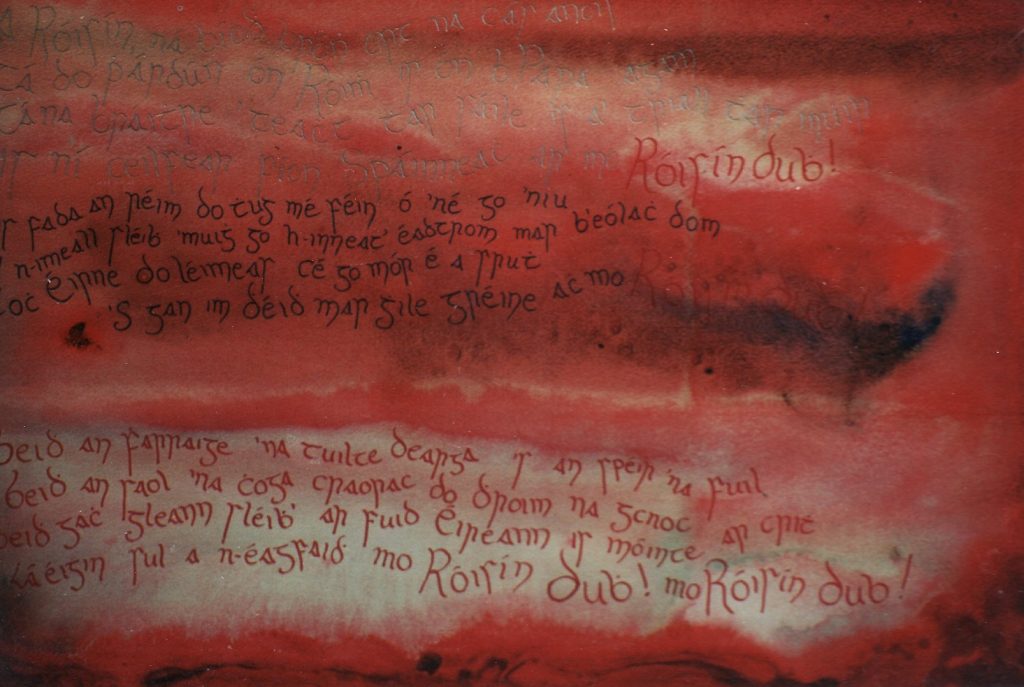 A Róisín, na bíoḋ brón ort na cár
Tá do ṗárdún ón Róiṁ is ón bPápa agam
Tá na bráiṫre 'teaċt tar sáile is a' triall tar muir
Is ní ceilfear fíon Spáinneaċ ar mo Róisín duḃ!
Is fada an réim do ṫug mé féin ó 'né go 'niu
n-imeall sléiḃ 'muiġ go h-inneat' éadtrom mar b'eólaċ dom
loċ Éirne do léimeas cé go mór é a sruṫ
'S gan im ḋéiḋ mar ġile gréine aċ mo Róisín duḃ
Beiḋ an ḟarraige 'na tuilte dearga is an spéir 'na fuil
Beiḋ an saol 'na ċoga craorac do ḋroim na gcnoc
Beiḋ gaċ gleann sléiḃ' ar fuid Éireann is móinte ar criṫ
Lá éigin sul a n-éagfaiḋ mo Róisín Duḃ! mo Róisín duḃ!